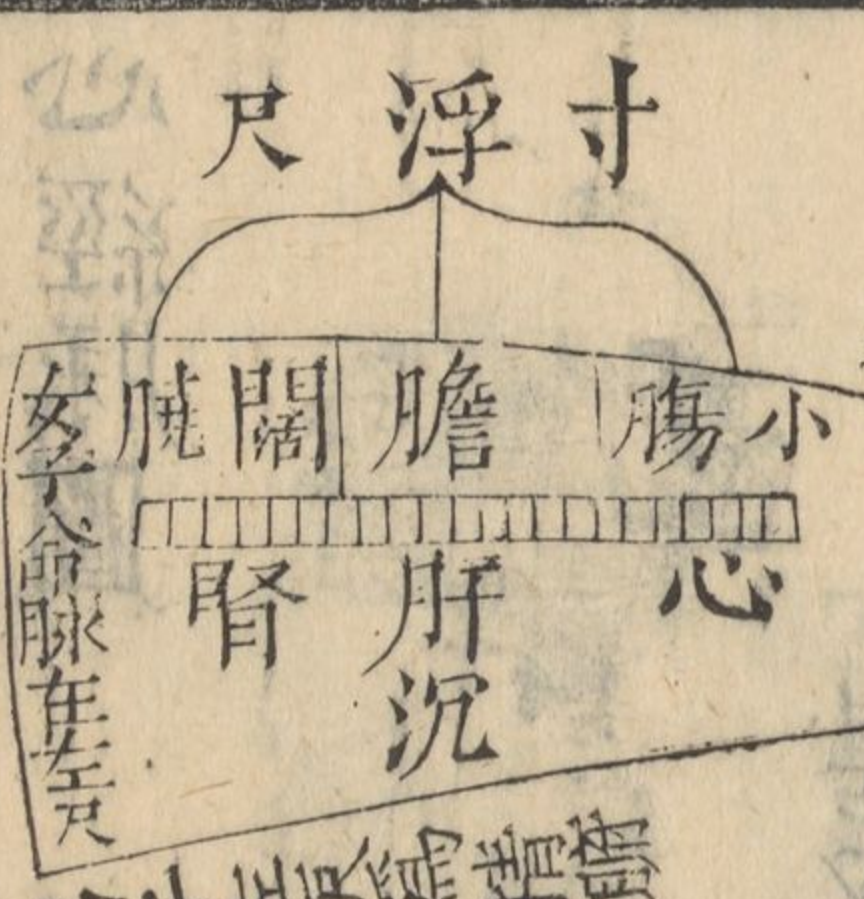 寸 浮 尺
小腸 膽 闊
心 肝 腎
沉
女子命脉在左尺